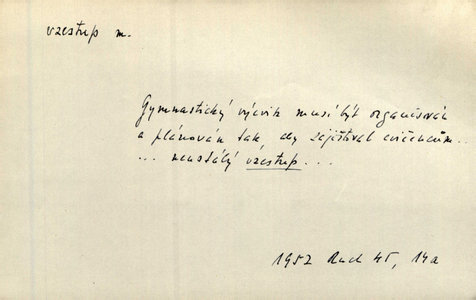 vzestup m.
Gymnastický výcvik musí být organisován
a plánován tak, aby zajišťoval cvičencům..
... neustálý vzestup...
1952 Ruch 45, 14a